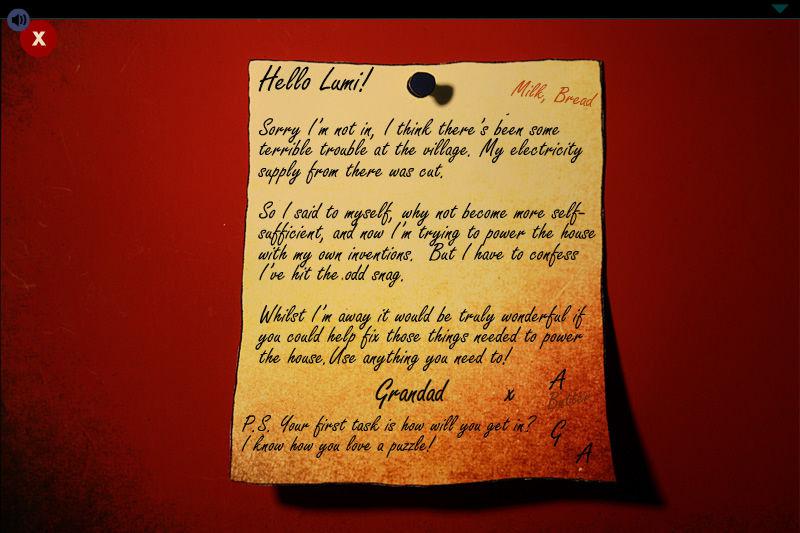 X
Hello Lumi!
Milk, Bread
Sorry I'm not in, I think there's been some
terrible trouble at the village. My electricity
supply from there was cut.
So I said to myself, why not become more self-
sufficient, and now I'm trying to power the house
with my own inventions. But I have to confess
I've hit the odd snag.
Whilst I'm away it would be truly wonderful if
you could help fix those things needed to power
the house. Use anything you need to!
Grandad x A
Butter
P.S. Your first task is how will you get in? G
I know how you love a puzzle! A